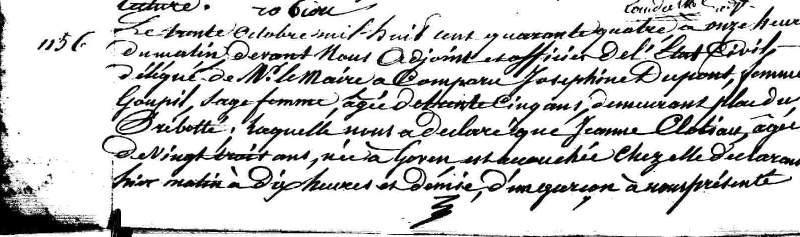 1156
Le trente Octobre mil huit cent quarante quatre à onze heures
du matin, devant Nous Adjoint et officier de l'Etat Civil,
délégué de Mr. le Maire a Comparu Josephine Dupont, femme
Goupil, sage femme, âgée de trente Cinq ans, demeurant place du
; laquelle nous a déclaré que Jeanne âgée
de Vingt ans, née à Goven est accouchée chez elle déclarante
hier matin à Dix heures et demie, d'un garçon à nous présenté